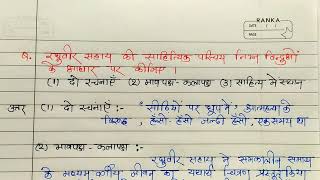 RANKA
DATE
प्र. रघुवीर सहाय की साहित्यिक परिचय निम्न बिन्दुओं
के आधार पर कीजिए।
(1) दो रचनाएँ (2) भावपक्ष-कलापक्ष (3) साहित्य में स्थान
उत्तर (1) दो रचनाएँ :- "सीढ़ियों पर धूप में" आत्महत्या के
विरुद्ध, हँसो-हँसो जल्दी हँसो, एक समय था
(2) भावपक्ष-कलापक्ष :-
रघुवीर सहाय ने समकालीन समाज
के मध्यम वर्गीय जीवन का यथार्थ चित्रण प्रस्तुत किया